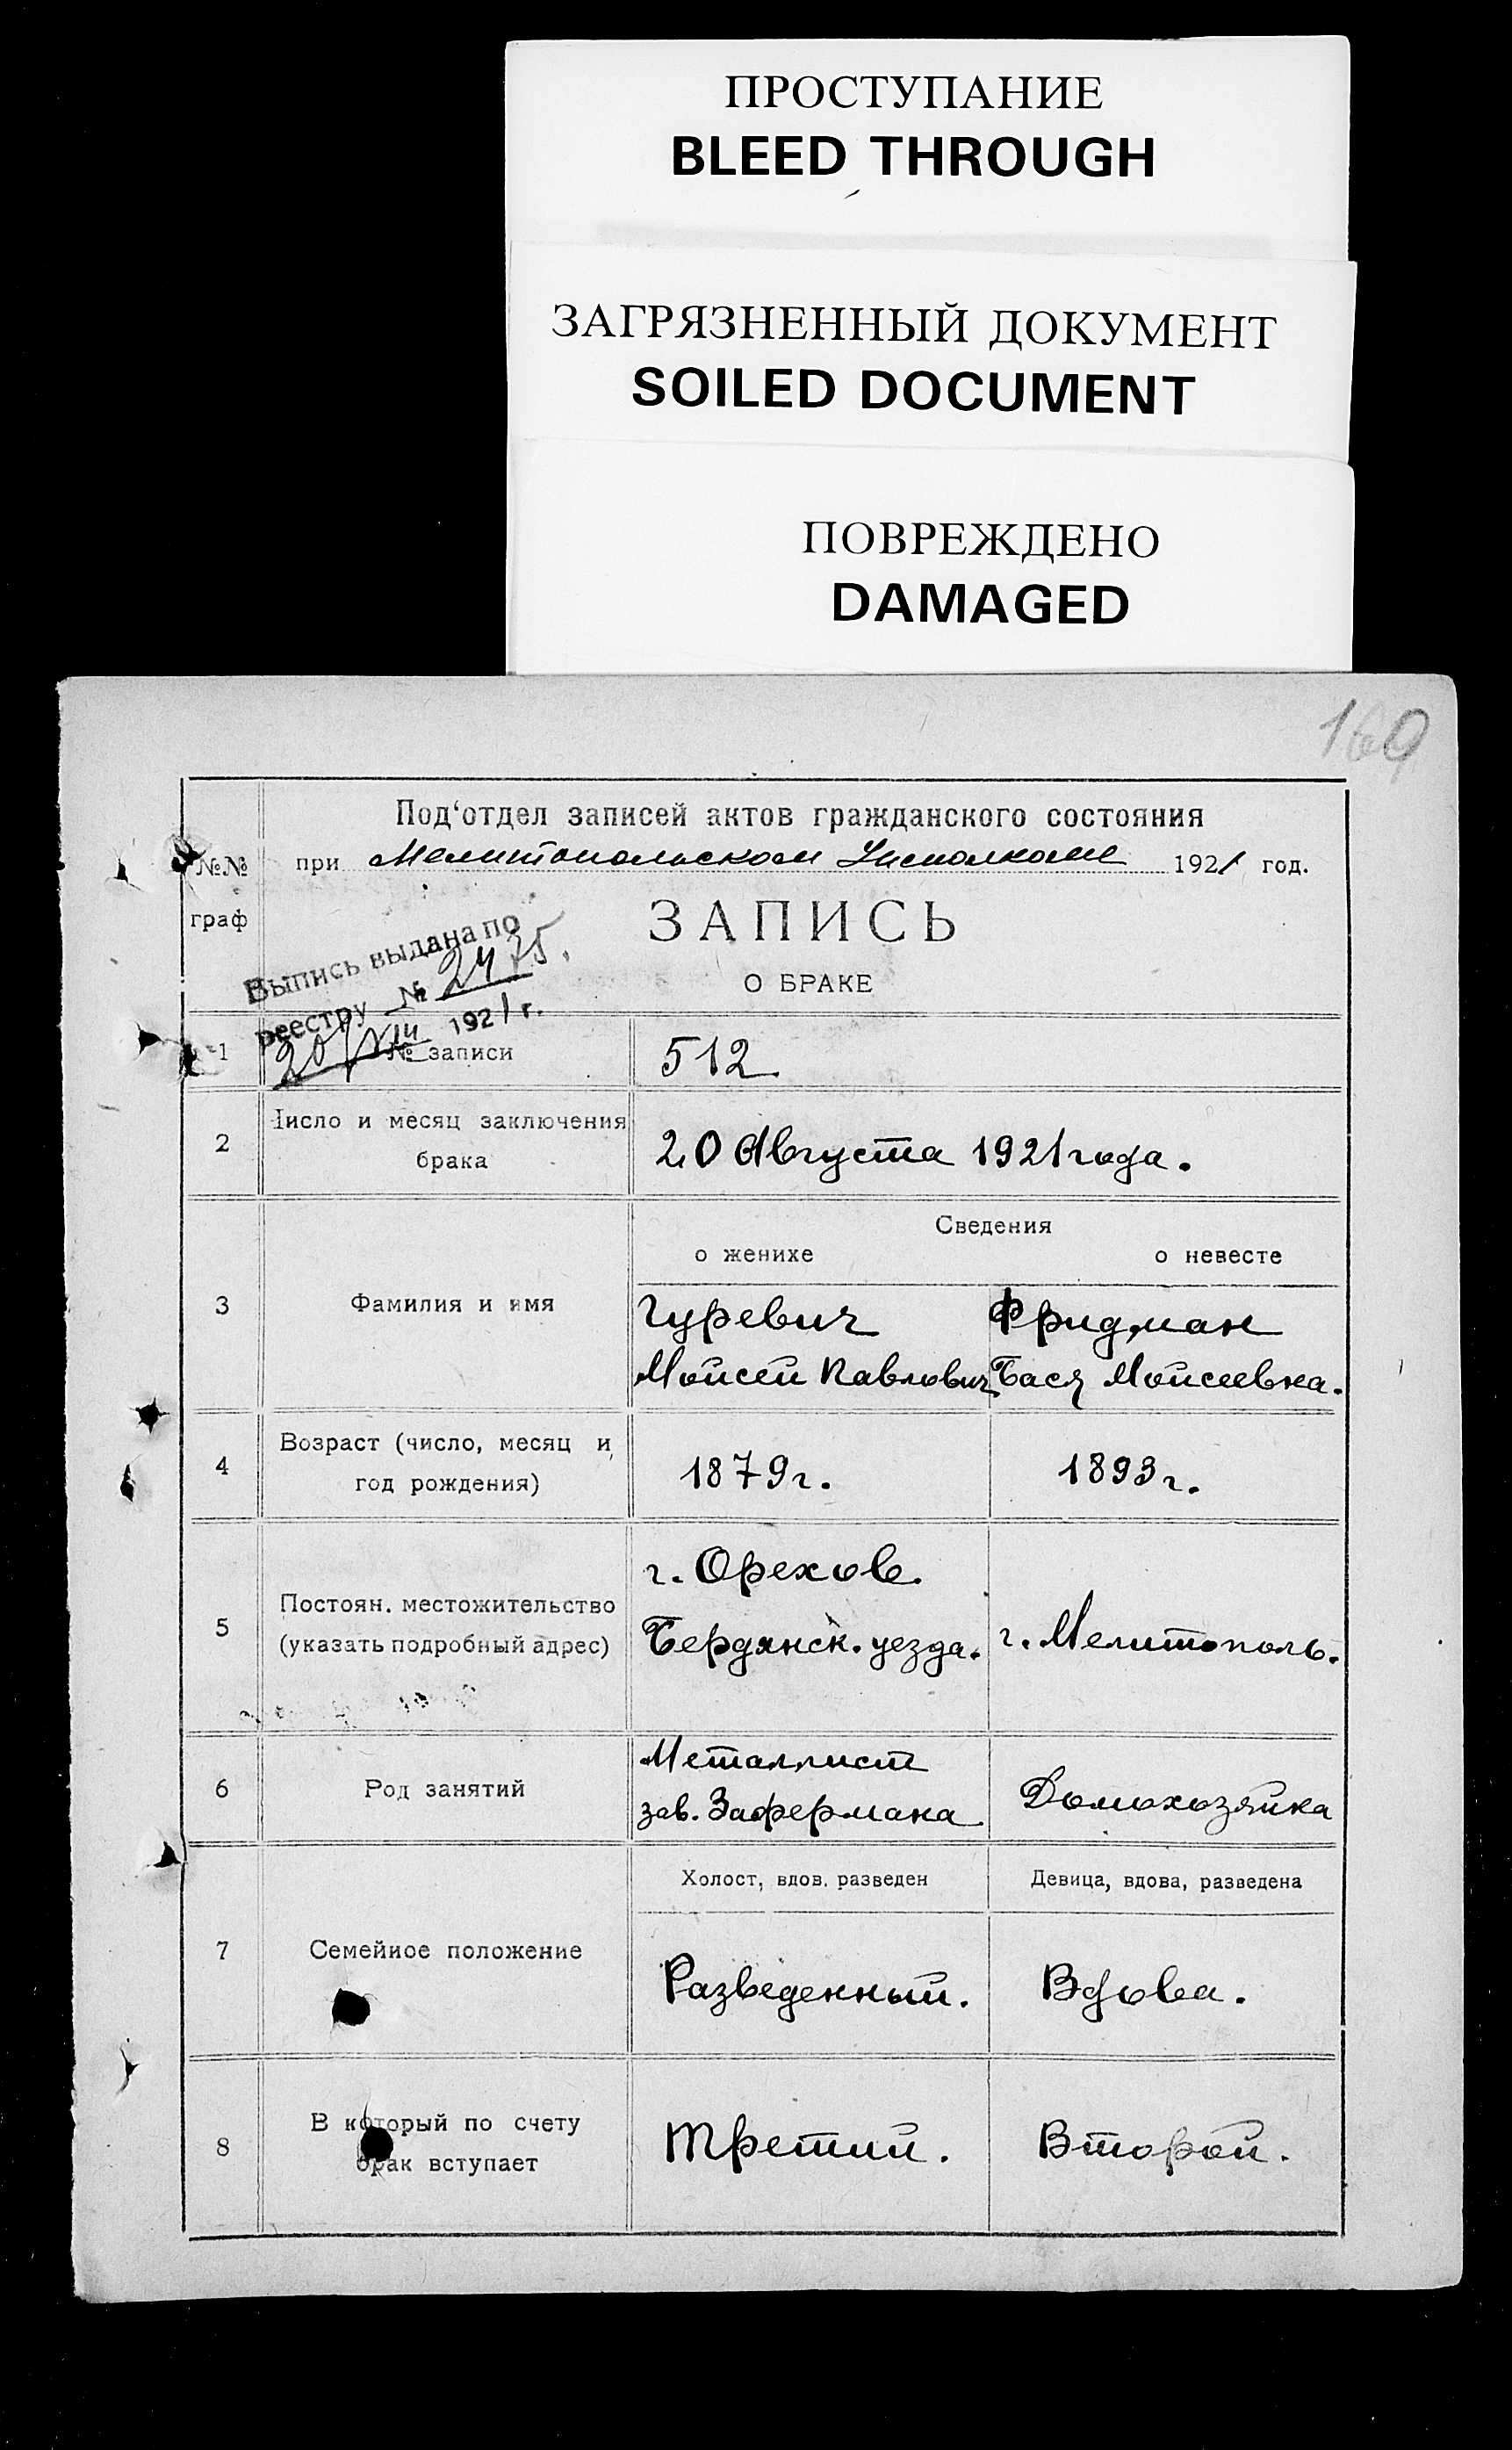 ПРОСТУПАНИЕ
BLEED THROUGH
ЗАГРЯЗНЕННЫЙ ДОКУМЕНТ
SOILED DOCUMENT
ПОВРЕЖДЕНО
DAMAGED
Под‘отдел записей актов гражданского состояния
№№
граф
при Мелитопольском Уисполкоме 1921 год.
ЗАПИСЬ
О БРАКЕ
Выпись выдана по
реестру № 2475.
20/VIII 1921 г.
1 № записи 512
2 Число и месяц заключения
брака
20 Августа 1921 года.
Сведения
о женихе о невесте
3 Фамилия и имя
Гуревич Фридман
Мойсей Павлович Бася Мойсеевна.
4 Возраст (число, месяц и
год рождения)
1879 г. 1893 г.
5 Постоян. местожительство
(указать подробный адрес)
г. Орехов
Бердянск. уезда. г. Мелитополь.
6 Род занятий
Металлист
зав. Зафермана Домохозяйка
Холост, вдов, разведен Девица, вдова, разведена
7 Семейное положение
Разведенный. Вдова.
8 В который по счету
брак вступает
Третий. Второй.